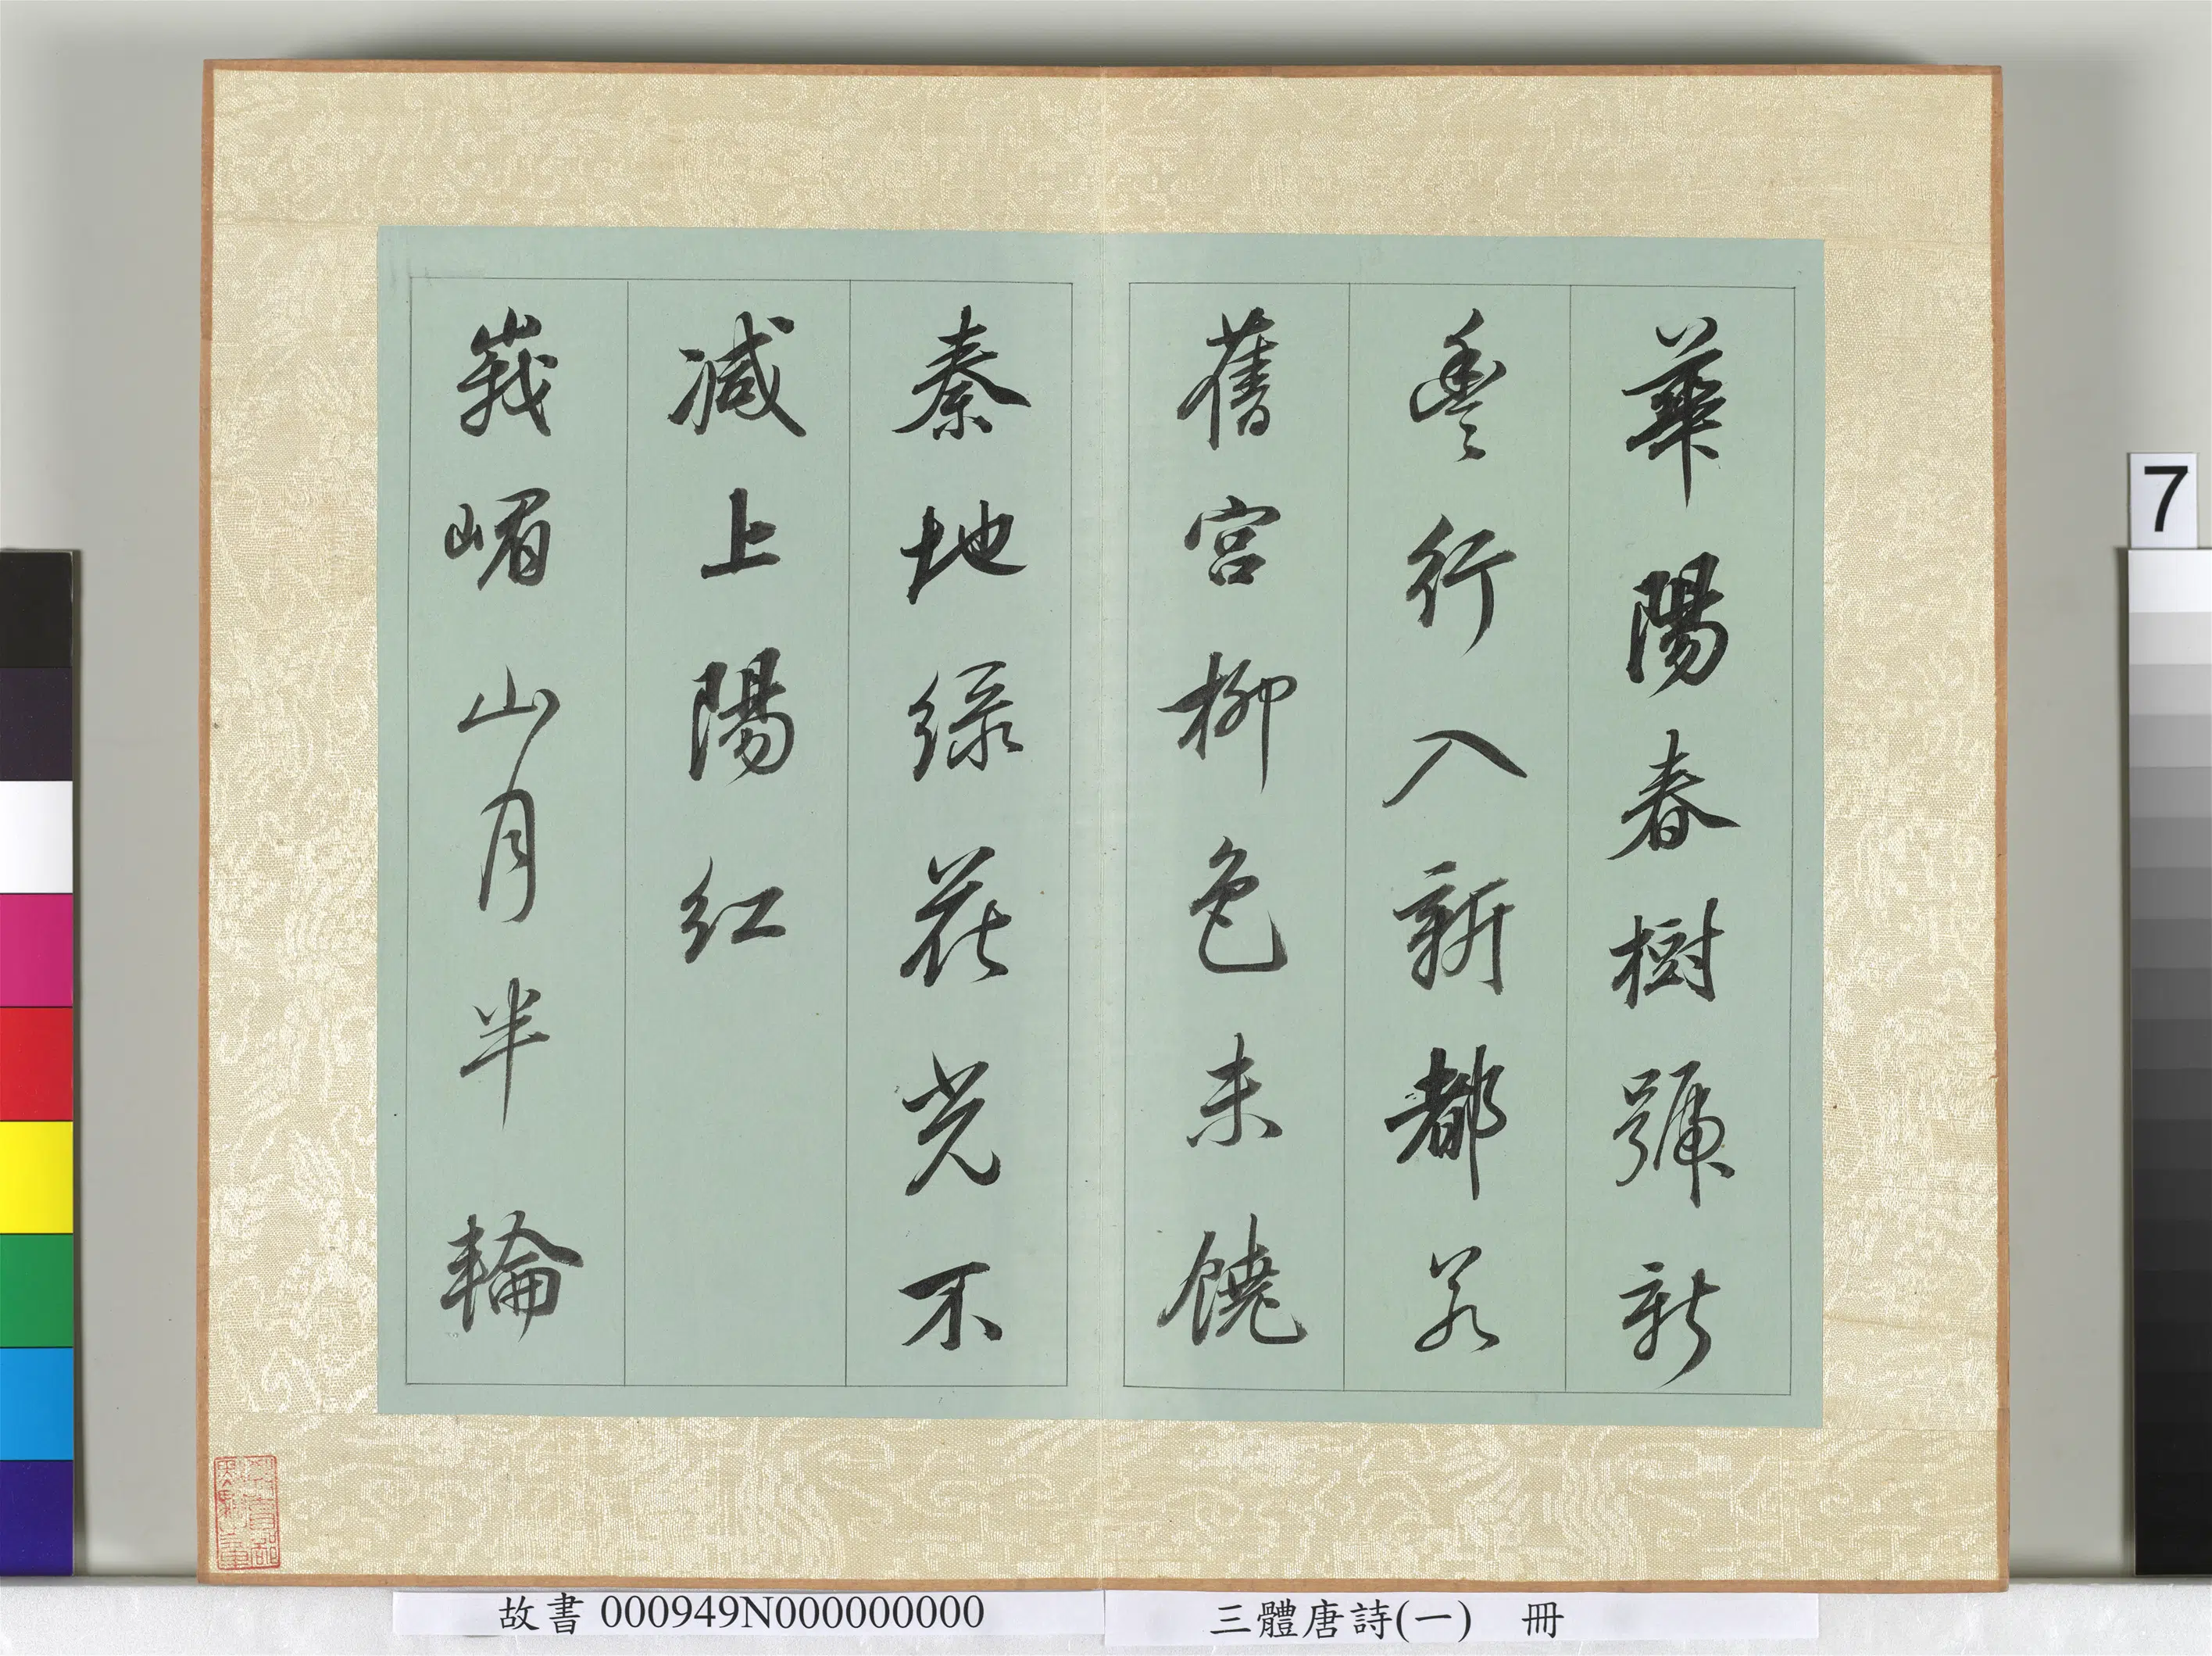 華陽春樹號新
豐行入新都若
舊宮柳色未饒
秦地綠花光不
減上陽紅
峩嵋山月半輪
7
故書 000949N000000000
三體唐詩(一) 冊